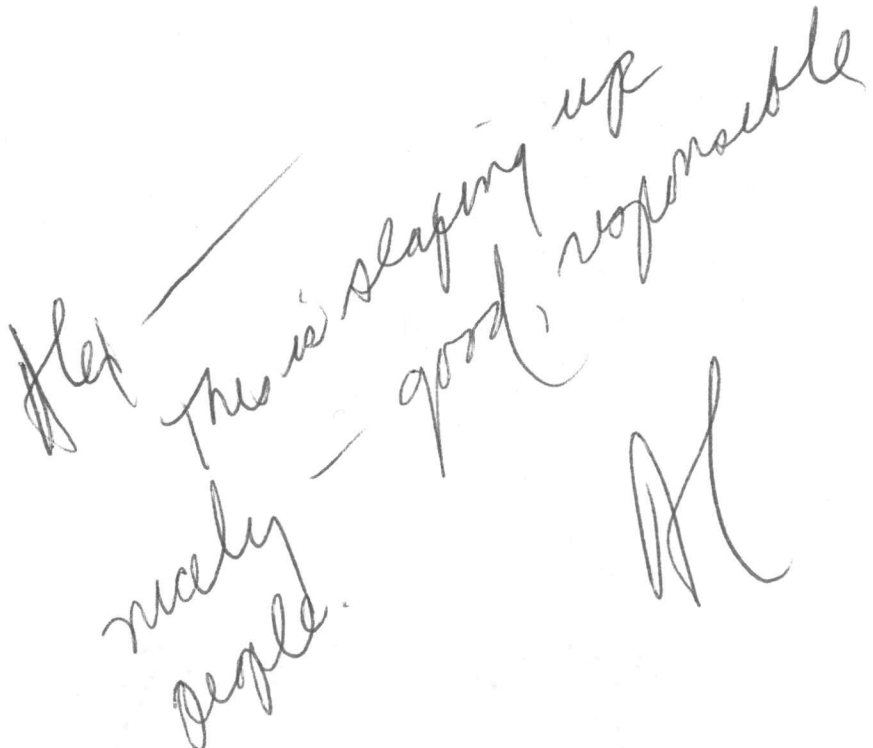 Alex —
This is shaping up
nicely — good, responsible
people.
AL